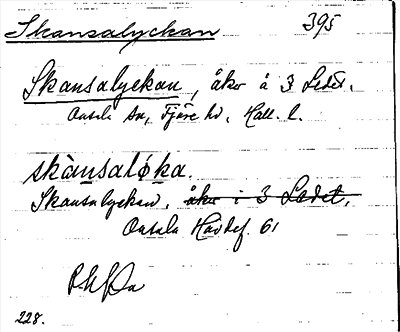 Skansalyckan 395
Skansalyckan, åker å 3 Ledet.
Onsala sn, Fjäre hd, Hall. l.
skànsaløka.
Skansalyckan, åker i 3 Ledet.
Onsala Havdef. 61
228.